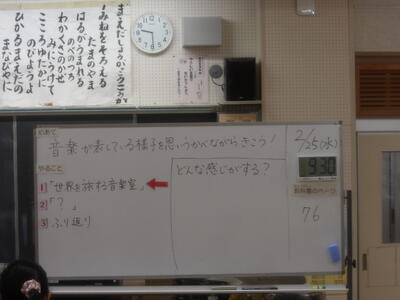 まえだしょうがっこうこうか
みねをそろえる
たまのやま
のべのつち
はるがうまれる
わかくさのかぜ
みにうけて
のびようよ
こころゆたかに
ひかるまえだの
まなびやに
めあて
音楽が表している様子を思いうかべながらきこう!
やること
1 「世界を旅する音楽室」
2 「?」
3 ふり返り
どんな感じがする?
2/25(水)
9:30
教科書のページ
76